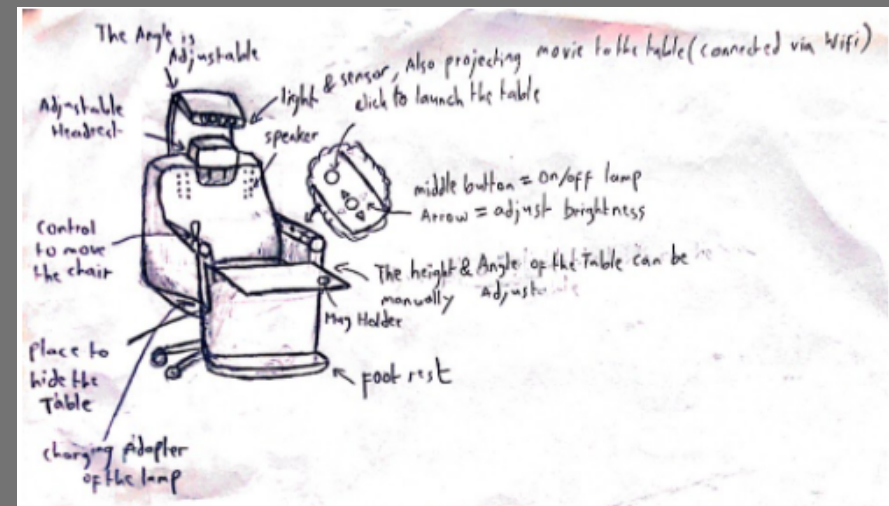 The Angle is
Adjustable
light & sensor, Also projecting movie to the table (connected via Wifi)
click to launch the table
Adjustable
Headrest
speaker
middle button = on/off lamp
Arrow = adjust brightness
control
to move
the chair
The height & Angle of the Table can be
manually Adjust
Mug Holder
Place to
hide the
Table
foot rest
charging Adapter
of the lamp